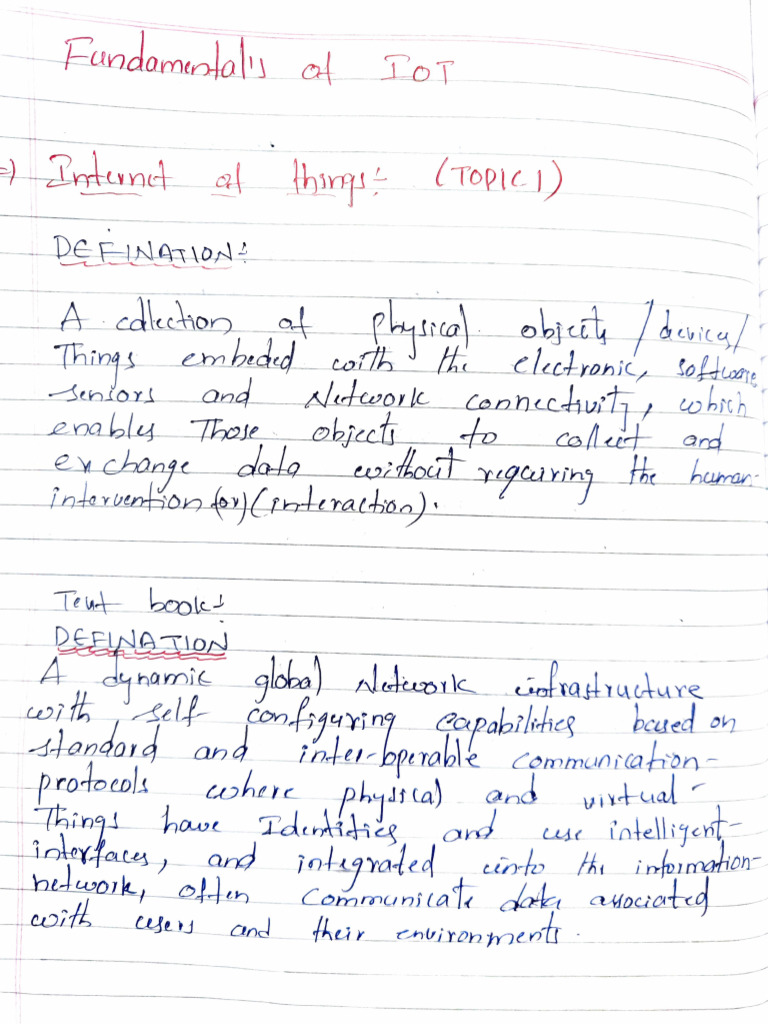 Fundamental's of IOT
=) Internet of things:- (TOPIC 1)
DEFINATION:
A collection of physical objects /devices/
Things embeded with the electronic, software,
sensors and Network connectivity, which
enables Those objects to collect and
exchange data without requiring the human-
intervention (or) (interaction).
Text book:
DEFINATION
A dynamic global Network infrastructure
with self configuring capabilities based on
standard and inter-operable communication-
protocols where physical and virtual-
Things have Identities and use intelligent-
interfaces, and integrated into the information-
network, often communicate data associated
with users and their environments.